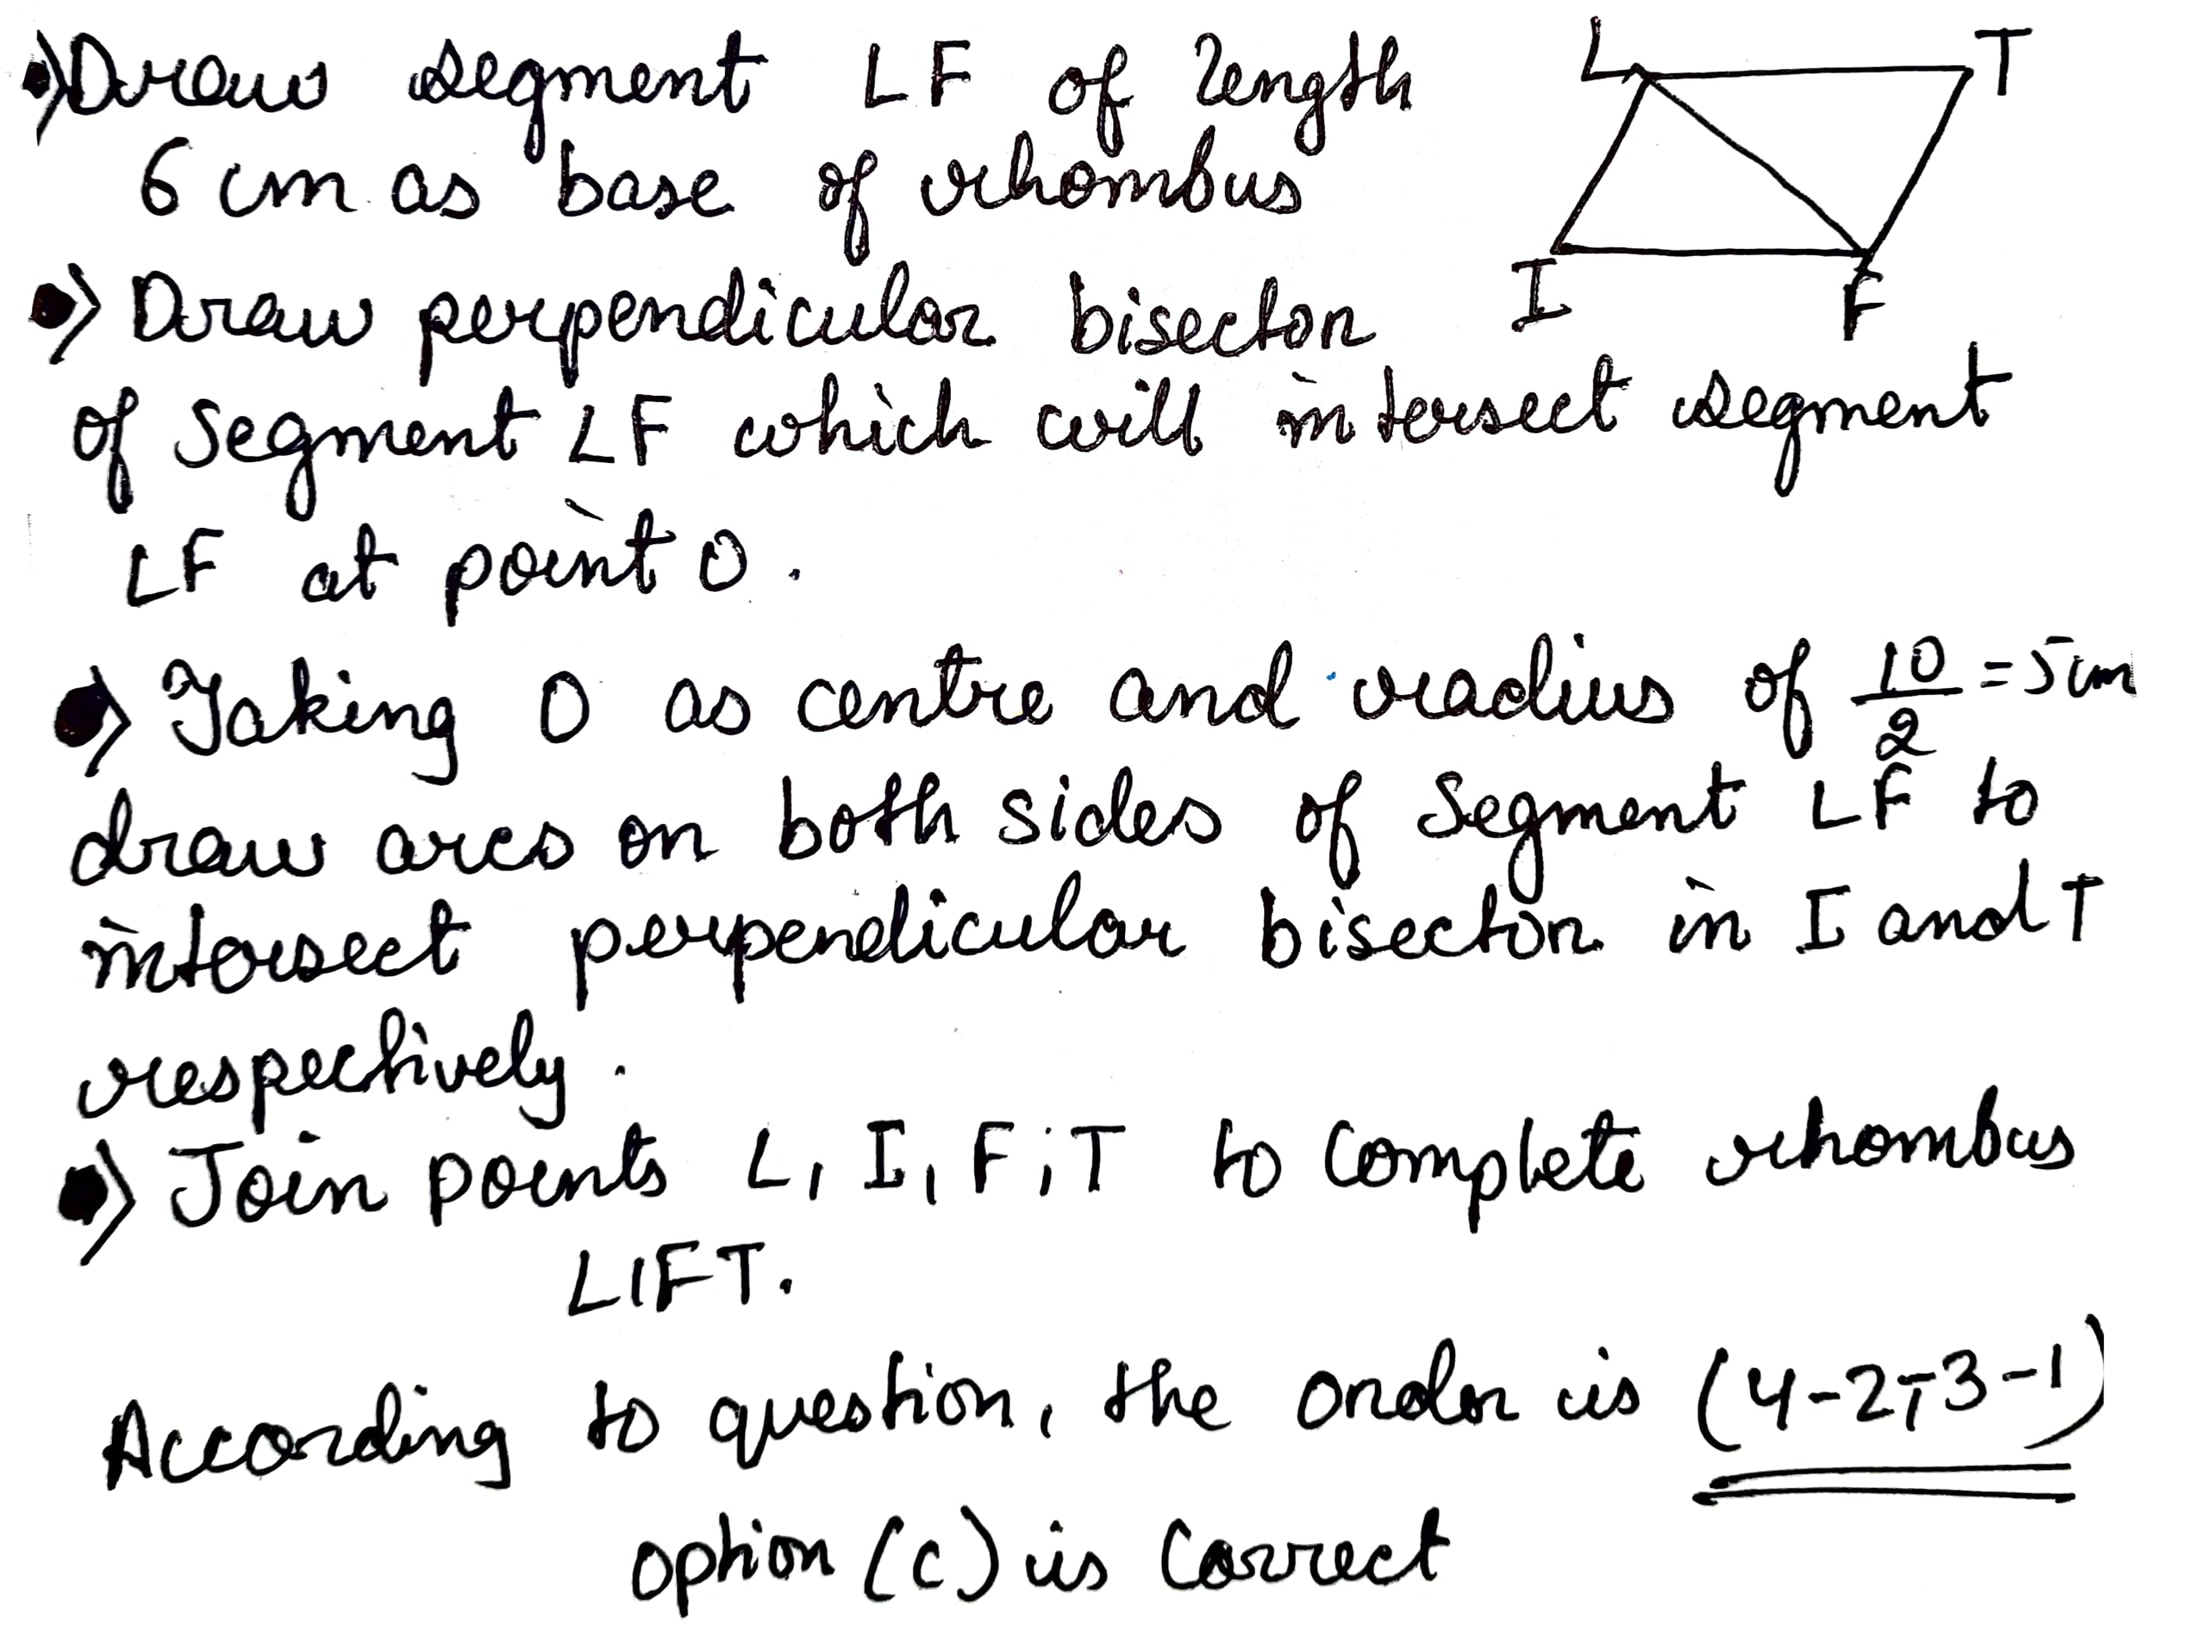 •) Draw segment LF of length
6 cm as base of rhombus
L T
I F
•) Draw perpendicular bisector
of segment LF which will intersect segment
LF at point O.
•) Taking O as centre and radius of 10/2 = 5 cm
draw arcs on both sides of segment LF to
intersect perpendicular bisector in I and T
respectively.
•) Join points L, I, F, T to complete rhombus
LIFT.
According to question, the order is (4-2-3-1)
option (c) is correct